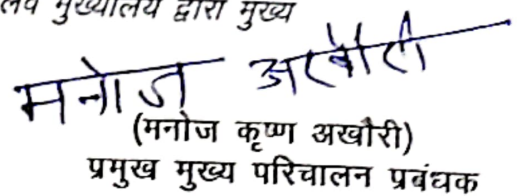 मुख्यालय द्वारा मुख्य
मनोज अखौरी
(मनोज कृष्ण अखौरी)
प्रमुख मुख्य परिचालन प्रबंधक